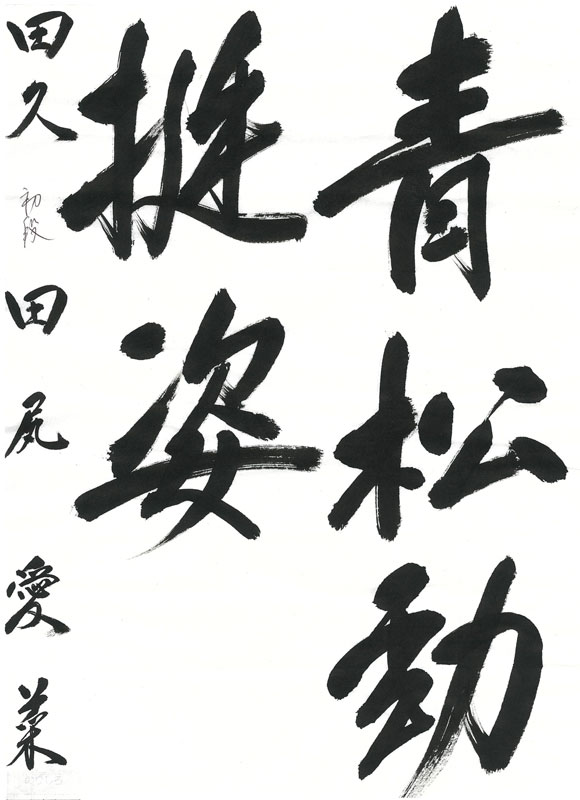 青松勁
挺姿
田久 初段 田尻 愛菜